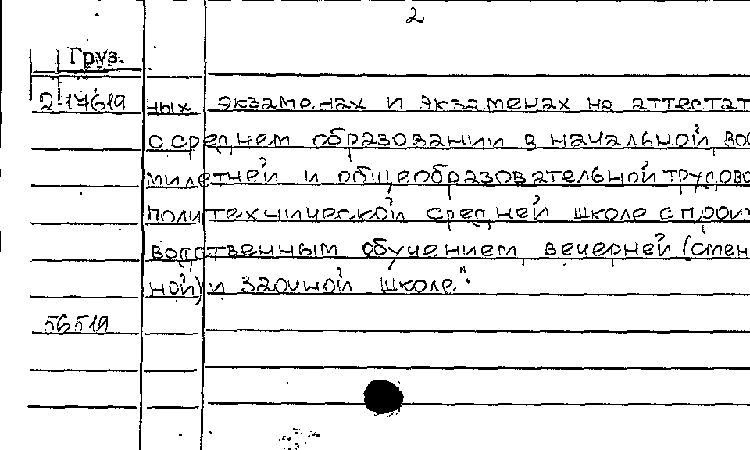 2
Груз.
2-17619 ных экзаменах и экзаменах на аттестат
о среднем образовании в начальной, вос
милетней и общеобразовательной трудово
политехнической средней школе с произ
водственным обучением вечерней (смен
ной) и заочной школе".
56519